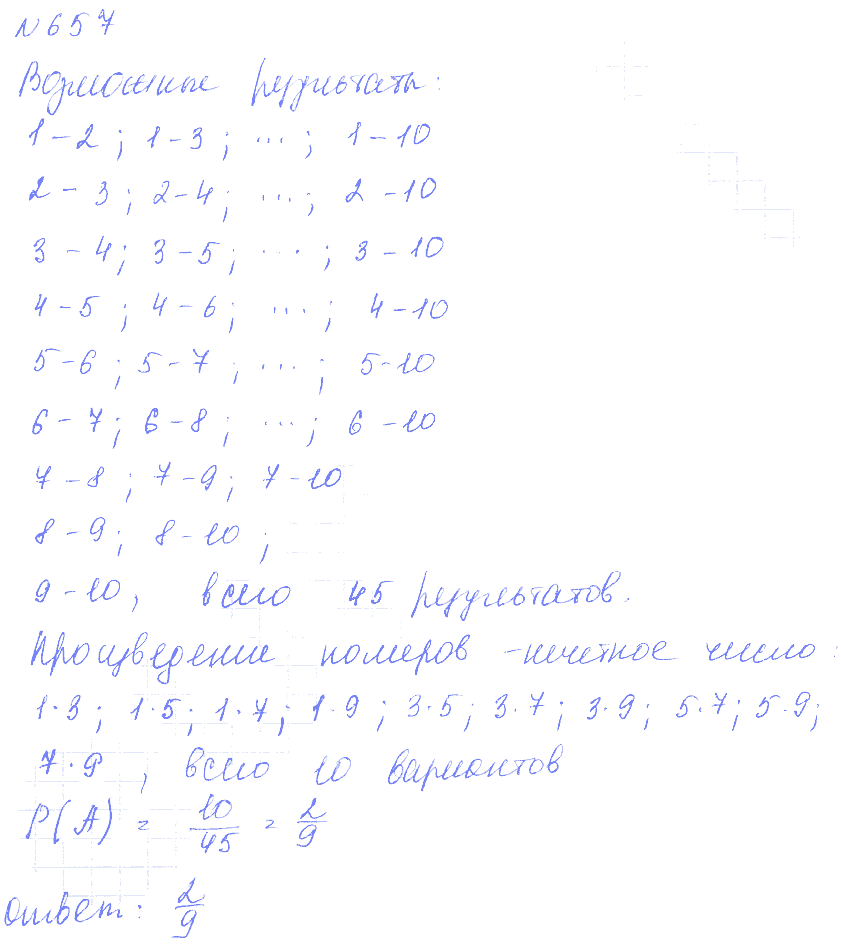 N 657
Возможные результаты:
1-2; 1-3; ...; 1-10
2-3; 2-4; ...; 2-10
3-4; 3-5; ...; 3-10
4-5; 4-6; ...; 4-10
5-6; 5-7; ...; 5-10
6-7; 6-8; ...; 6-10
7-8; 7-9; 7-10
8-9; 8-10;
9-10, всего 45 результатов.
Произведение номеров - нечетное число:
1·3; 1·5; 1·7; 1·9; 3·5; 3·7; 3·9; 5·7; 5·9;
7·9, всего 10 вариантов
P(A) = 10/45 = 2/9
Ответ: 2/9